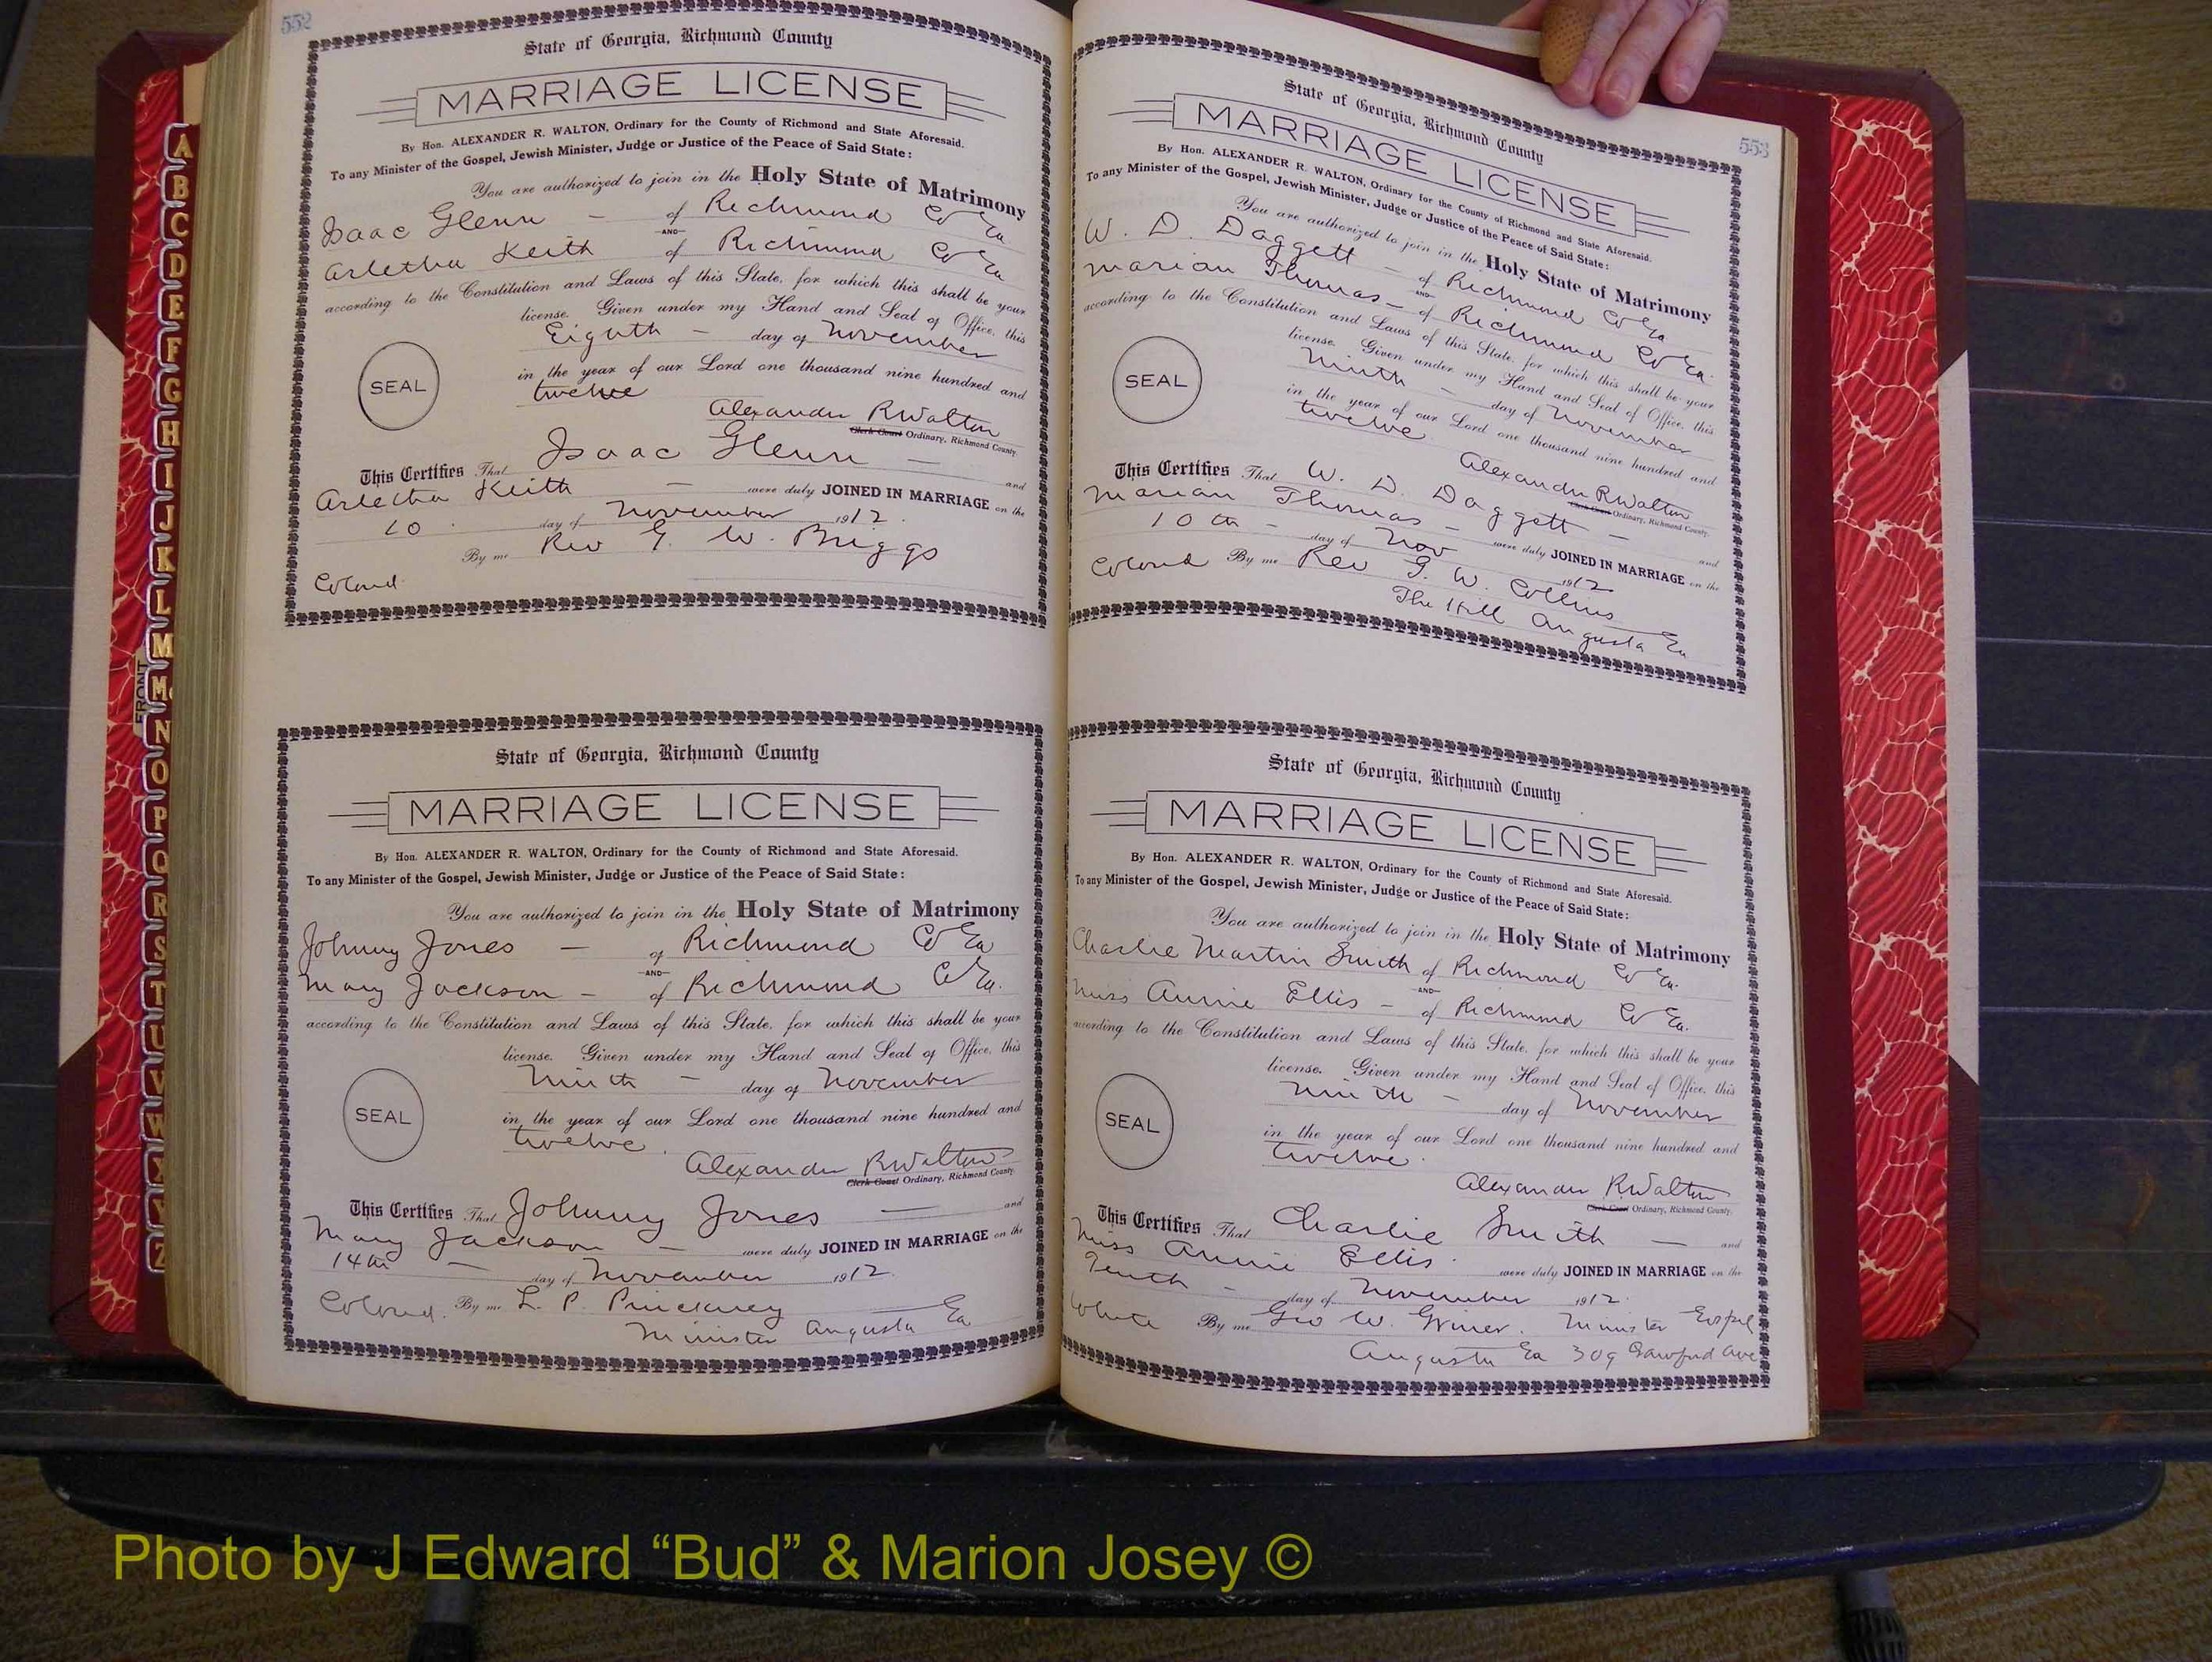 552
State of Georgia, Richmond County
MARRIAGE LICENSE
By Hon. ALEXANDER R. WALTON, Ordinary for the County of Richmond and State Aforesaid.
To any Minister of the Gospel, Jewish Minister, Judge or Justice of the Peace of Said State:
You are authorized to join in the Holy State of Matrimony
Isaac Glenn — of Richmond Co Ga
AND
Arletha Keith of Richmond Co Ga
according to the Constitution and Laws of this State, for which this shall be your
license. Given under my Hand and Seal of Office, this
Eighth — day of November
SEAL
in the year of our Lord one thousand nine hundred and
twelve
Alexander R Walton
Clerk Court Ordinary, Richmond County.
This Certifies That Isaac Glenn — and
Arletha Keith — were duly JOINED IN MARRIAGE on the
10 day of November 1912.
By me Rev G. W. Briggs
Colored
State of Georgia, Richmond County
MARRIAGE LICENSE
By Hon. ALEXANDER R. WALTON, Ordinary for the County of Richmond and State Aforesaid.
To any Minister of the Gospel, Jewish Minister, Judge or Justice of the Peace of Said State:
You are authorized to join in the Holy State of Matrimony
Johnny Jones — of Richmond Co Ga
AND
Mary Jackson — of Richmond Co Ga.
according to the Constitution and Laws of this State, for which this shall be your
license. Given under my Hand and Seal of Office, this
Ninth — day of November
SEAL
in the year of our Lord one thousand nine hundred and
twelve.
Alexander R Walton
Clerk Court Ordinary, Richmond County.
This Certifies That Johnny Jones — and
Mary Jackson — were duly JOINED IN MARRIAGE on the
14th — day of November 1912.
Colored. By me L. P. Pinckney
Minister Augusta Ga
553
State of Georgia, Richmond County
MARRIAGE LICENSE
By Hon. ALEXANDER R. WALTON, Ordinary for the County of Richmond and State Aforesaid.
To any Minister of the Gospel, Jewish Minister, Judge or Justice of the Peace of Said State:
You are authorized to join in the Holy State of Matrimony
W. D. Daggett — of Richmond Co Ga
AND
Marian Thomas — of Richmond Co Ga.
according to the Constitution and Laws of this State, for which this shall be your
license. Given under my Hand and Seal of Office, this
Ninth — day of November
SEAL
in the year of our Lord one thousand nine hundred and
twelve.
Alexander R Walton
Clerk Court Ordinary, Richmond County.
This Certifies That W. D. Daggett — and
Marian Thomas — were duly JOINED IN MARRIAGE on the
10th — day of Nov 1912
Colored By me Rev G. W. Collins
The Hill Augusta Ga
State of Georgia, Richmond County
MARRIAGE LICENSE
By Hon. ALEXANDER R. WALTON, Ordinary for the County of Richmond and State Aforesaid.
To any Minister of the Gospel, Jewish Minister, Judge or Justice of the Peace of Said State:
You are authorized to join in the Holy State of Matrimony
Charlie Martin Smith of Richmond Co Ga.
AND
Miss Annie Ellis — of Richmond Co Ga.
according to the Constitution and Laws of this State, for which this shall be your
license. Given under my Hand and Seal of Office, this
Ninth — day of November
SEAL
in the year of our Lord one thousand nine hundred and
twelve.
Alexander R Walton
Clerk Court Ordinary, Richmond County.
This Certifies That Charlie Smith — and
Miss Annie Ellis. were duly JOINED IN MARRIAGE on the
Tenth — day of November 1912.
White By me Geo W. Griner. Minister Gospel
Augusta Ga 309 Crawford Ave
A
B
C
D
E
F
G
H
I
J
K
L
M
Mc
N
O
P
Q
R
S
T
U
V
W
X
Y
Z
FRONT
Photo by J Edward “Bud” & Marion Josey ©